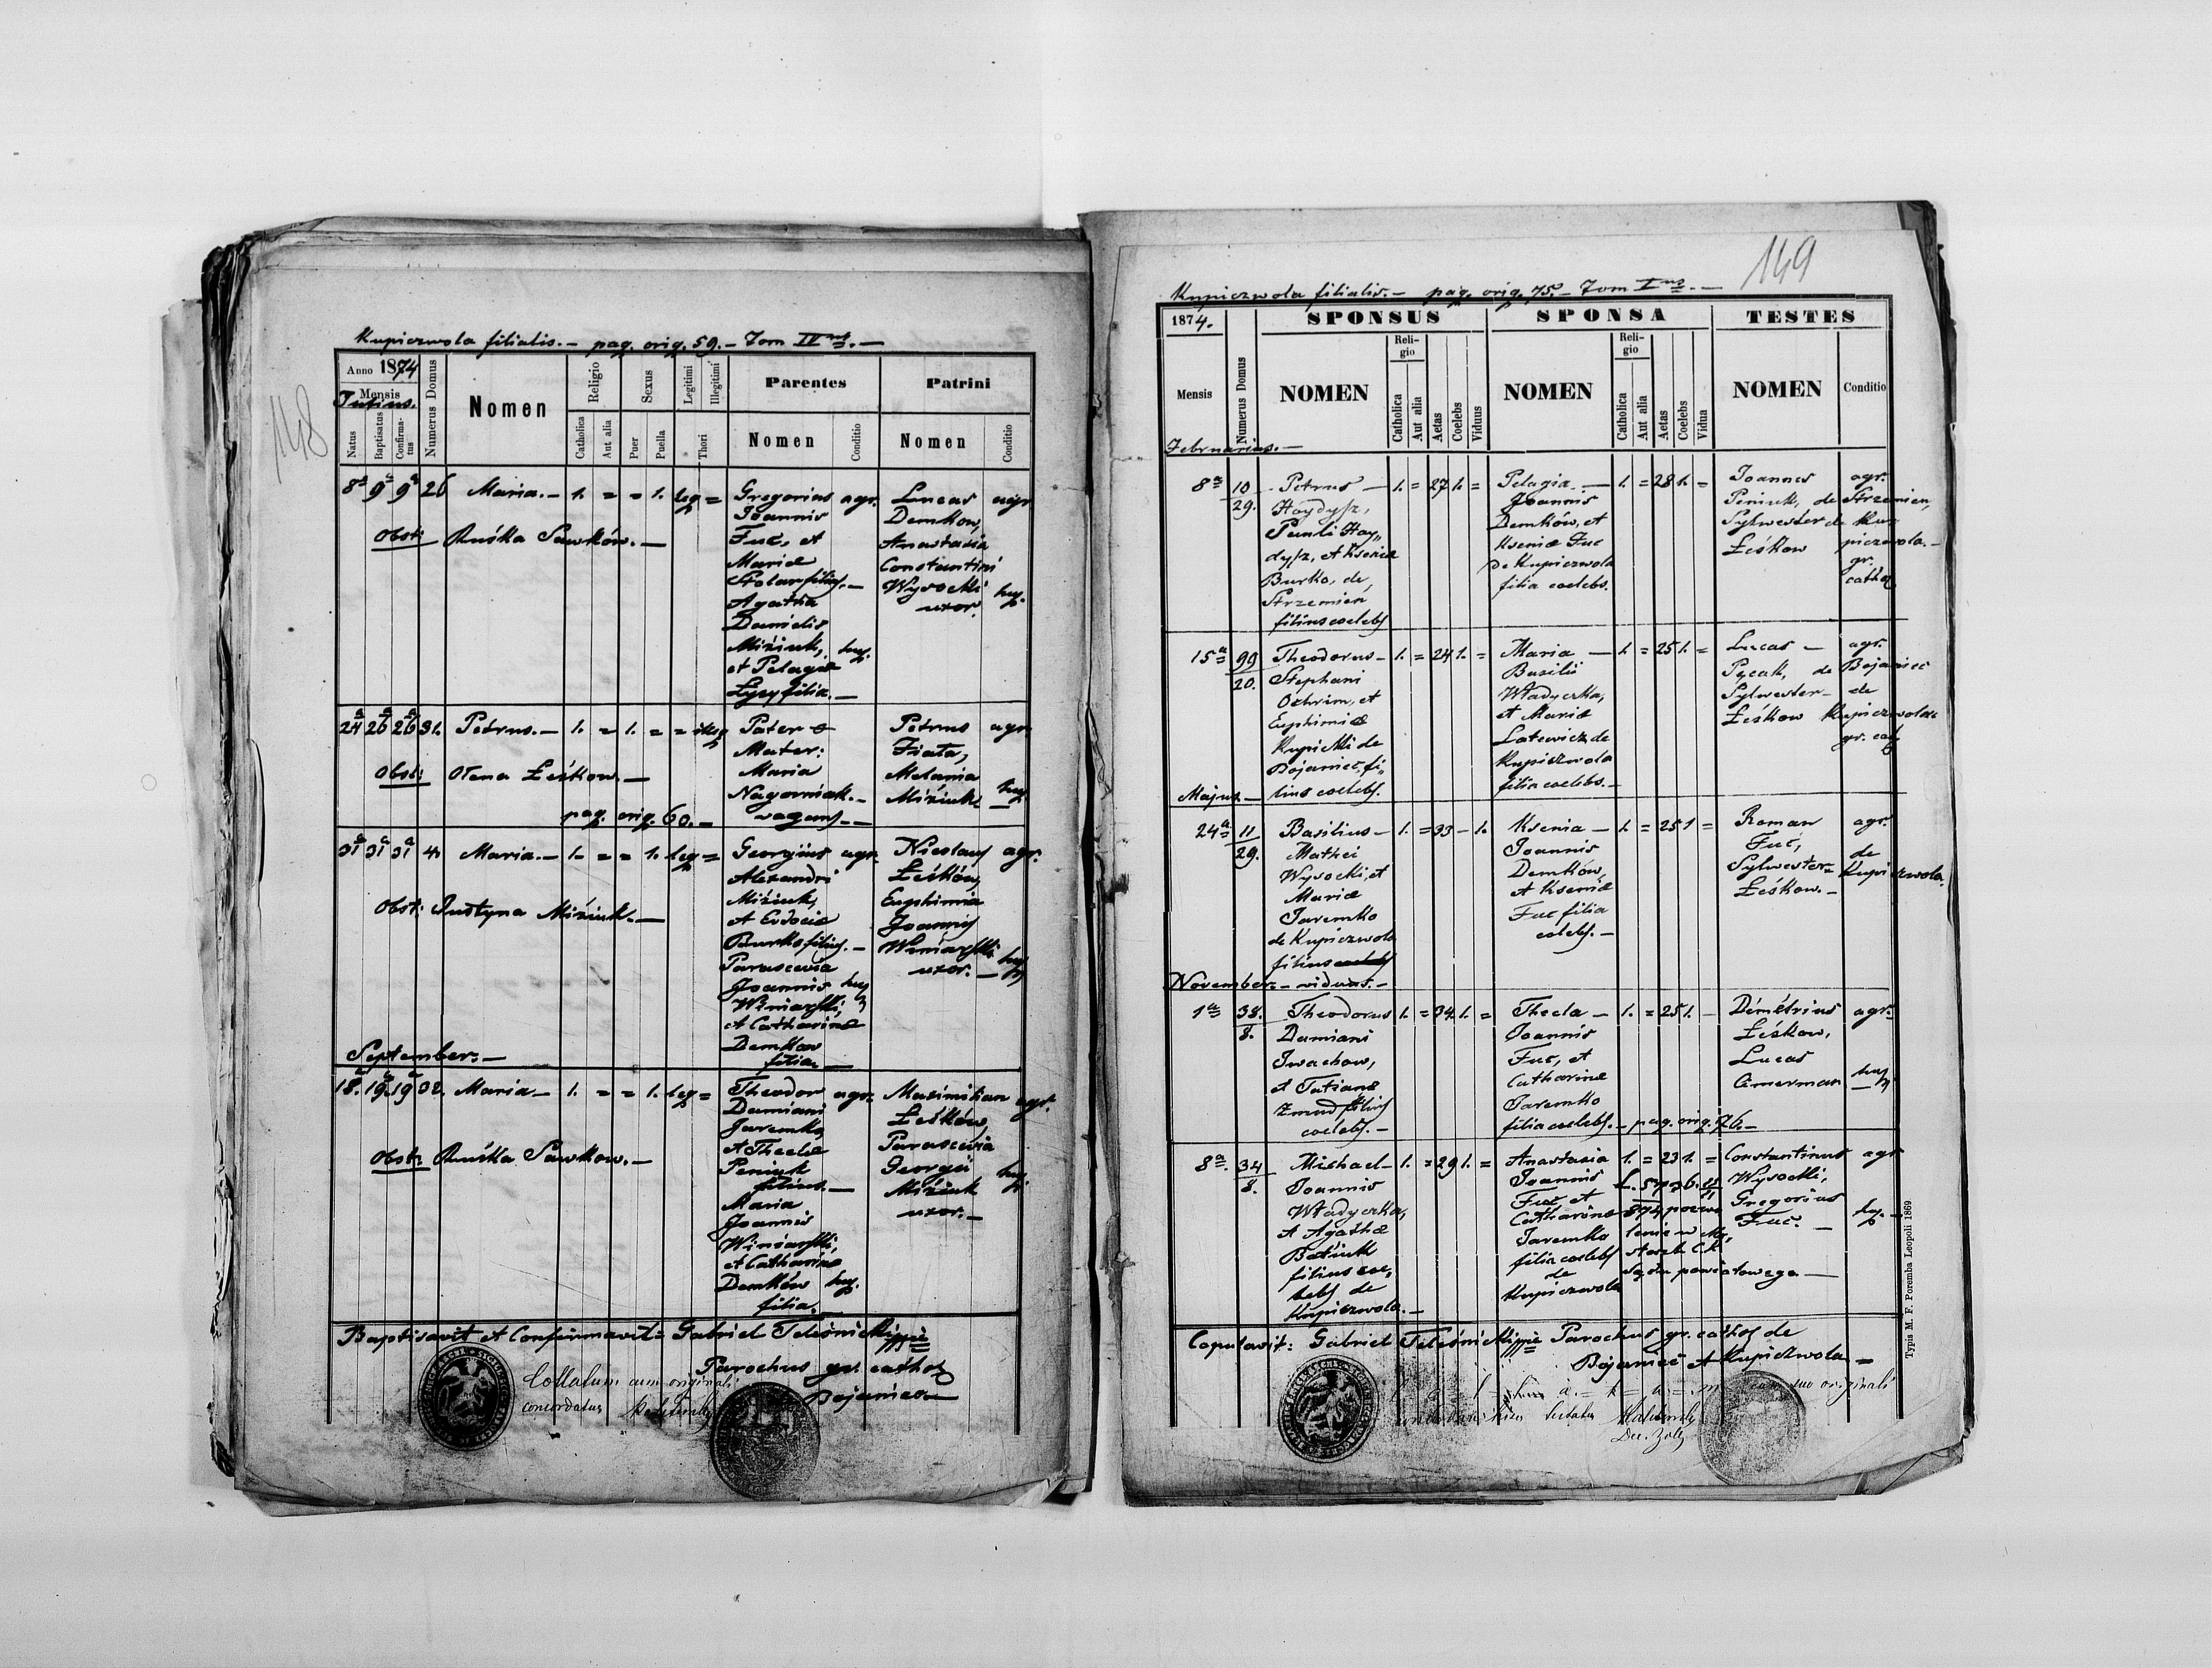 148
Kupiczwola filialis. — pag. orig. 59. — Tom II
Anno 1874
Mensis
Julius.
Natus
Baptisatus
Confirma-
tus
Numerus Domus
Nomen
Religio
Catholica
Aut alia
Sexus
Puer
Puella
Legitimi
Illegitimi
Thori
Parentes
Nomen
Conditio
Patrini
Nomen
Conditio
8a 9a 9a 26 Maria. — 1. = = 1. leg =
Obst: Ruśka Sawków. —
Gregorius agr.
Joannis
Fuc, et
Mariæ
Stolar filius. —
Agatha
Danielis
Miziuk,
et Pelagiæ
Łysy filia. —
Lucas agr
Demkow,
Anastasia
Constantini
Wysocki
uxor.
24a 26a 26a 31. Petrus. — 1. = 1. = =
Obst: Olena Leśkow. —
Pater
Mater:
Maria
Nagorniak. —
vagans —
Petrus agr.
Fiała,
Melania
Miziuk
pag. orig. 60. —
31a 31a 31a 4. Maria. — 1. = = 1. leg =
Obst: Justyna Miziuk. —
Georgius agr.
Alexandri
Miziuk,
et Eudociæ
Burko filius. —
Parascevia
Joannis
Winiarski,
et Catharinæ
Demkow
filia —
Nicolaus agr.
Leśków,
Euphimia
Joannis
Winiarski
uxor. —
September. —
18. 19. 19 32. Maria — 1. = = 1. leg =
Obst: Ruśka Sawkow. —
Theodor agr.
Damiani
Jaremko
et Theclæ
Peniuk
filius. —
Maria
Joannis
Winiarski,
et Catharinæ
Demków
filia. —
Maximilian agr.
Leśków,
Parascevia
Georgii
Miziuk
uxor. —
Baptisavit et Confirmavit = Gabriel Teleśnicki
Parochus gr. cathol
Bojaniec —
Collatum cum originali
concordatus
149
Kupiczwola filialis. — pag. orig. 75. — Tom I
1874.
Mensis
Numerus Domus
SPONSUS
NOMEN
Reli-
gio
Catholica
Aut alia
Aetas
Coelebs
Viduus
SPONSA
NOMEN
Reli-
gio
Catholica
Aut alia
Aetas
Coelebs
Vidua
TESTES
NOMEN
Conditio
Februarius. —
8a 10/29. Petrus — 1. = 27 1. =
Haydysz,
Pauli Hay„
dysz, et Kseniæ
Burko, de
Strzemien
filius coelebs
Pelagia — 1. = 28 1. =
Joannis
Demków, et
Kseniæ Fuc
de Kupiczwola
filia coelebs.
Joannes agr.
Peniuk, de Strzemien,
Sylwester de Ku
Leśkow piczwola. —
gr.
cathol
15a 99/20. Theodorus — 1. = 24 1. =
Stephani
Ochrim, et
Euphimiæ
Kupicki de
Bojaniec, fi„
lius coelebs.
Maria — 1. = 25 1. =
Basilii
Władyczka,
et Mariæ
Latewicz de
Kupiczwola
filia coelebs. —
Lucas — agr.
Pycak, de Bojaniec
Sylwester — de
Leśkow Kupiczwola
gr. cath
Majus —
24a 11/29. Basilius — 1. = 33 — 1.
Mathei
Wysocki, et
Mariæ
Jaremko
de Kupiczwola
filius coelebs
viduus. —
Ksenia — 1. = 25 1 =
Joannis
Demków,
et Kseniæ
Fuc filia
coelebs. —
Roman agr.
Fuc,
Sylwester de
Leśkow. — Kupiczwola.
November. —
1a 38./8. Theodorus 1. = 34 1. =
Damiani
Iwachow,
et Tatianæ
Zmud filius
coelebs. —
Thecla — 1. = 25 1. —
Joannis
Fuc, et
Catharinæ
Jaremko
filia coelebs. — pag. orig. 76. —
Démétrius agr.
Leskow,
Lucas
Cimerman
8a. 34/8. Michael — 1. = 29 1. =
Joannis
Władyczka,
et Agathæ
Batiuk
filius coe„
lebs de
Kupiczwola. —
Anastasia 1. = 23 1. =
Joannis
Fuc, et
Catharinæ
Jaremko
filia coelebs
de
Kupiczwola
Sądu powiatowego —
Constantinus agr
Wysocki,
Gregorius
Fuc. —
Copulavit: Gabriel Teleśnicki Parochus gr. cathol de
Bojaniec et Kupiczwola =
cum suo originali
Typis M. F. Poremba Leopoli 1869